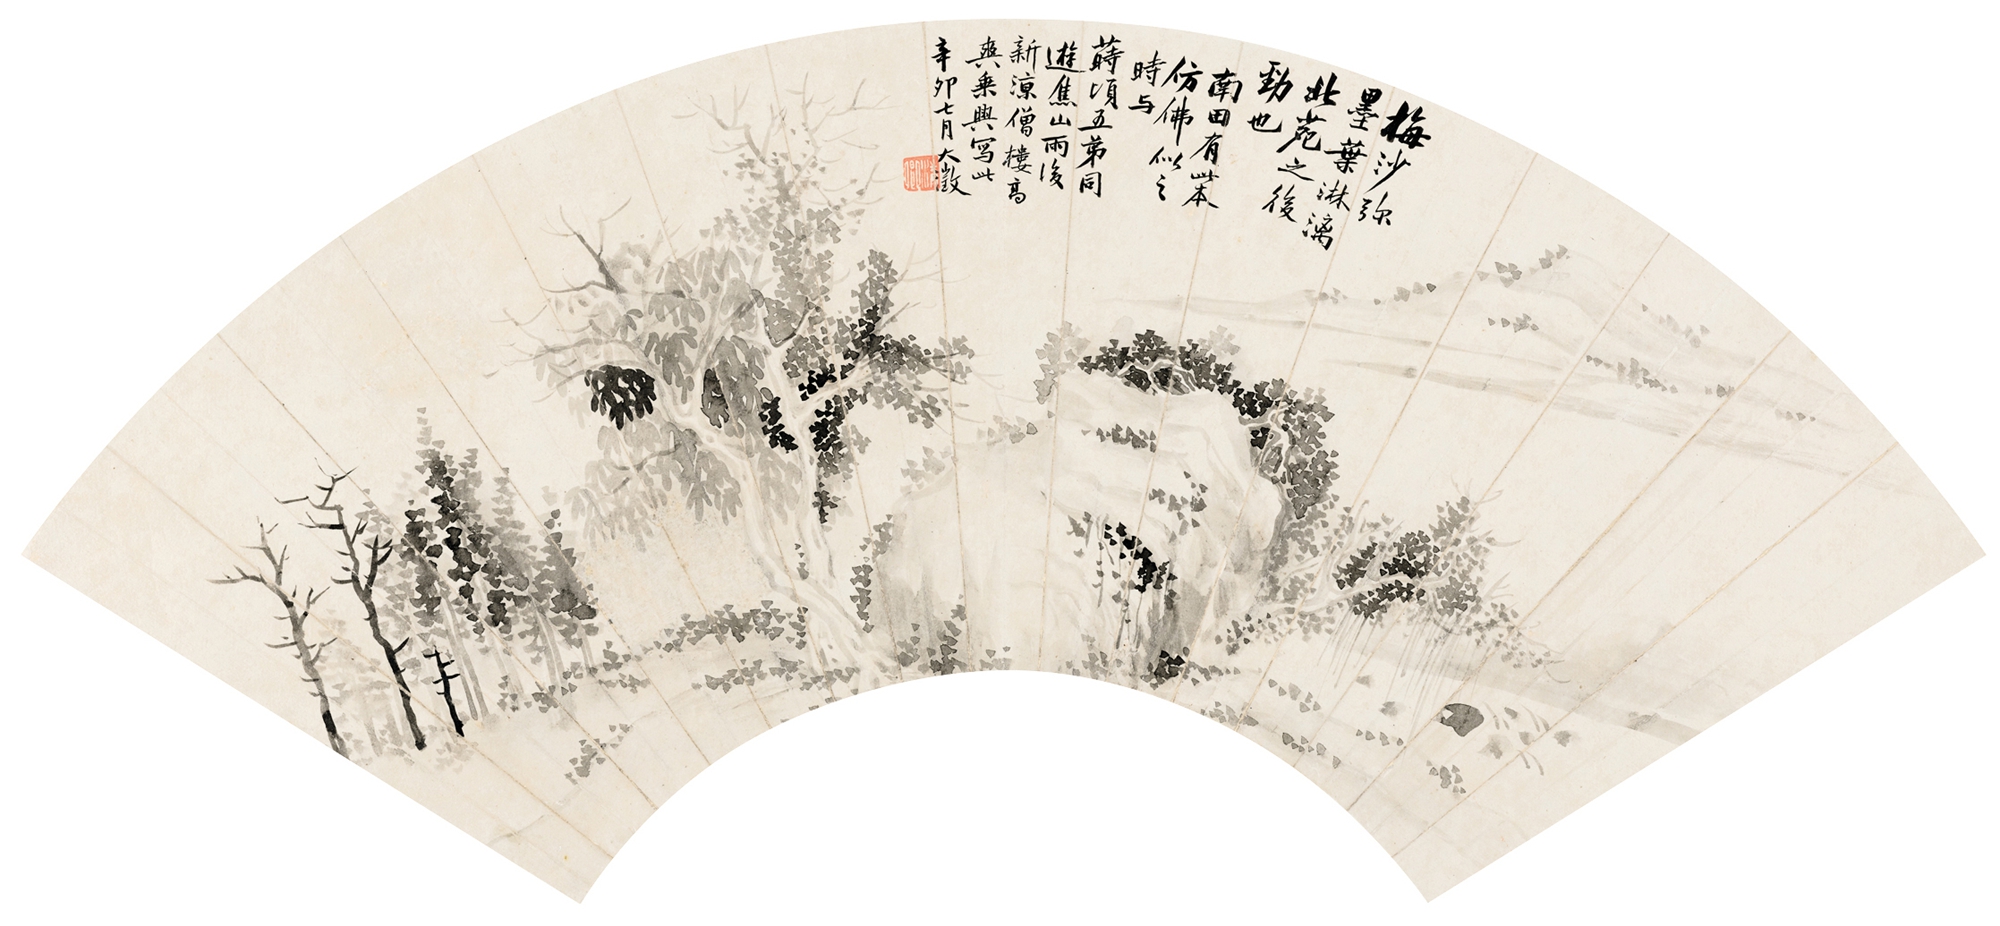 梅沙弥
墨葉淋漓
北苑之後
勁也
南田有此本
仿佛似之
時与
蒔頃五弟同
遊焦山雨後
新涼僧樓高
爽乘興写此
辛卯七月大澂